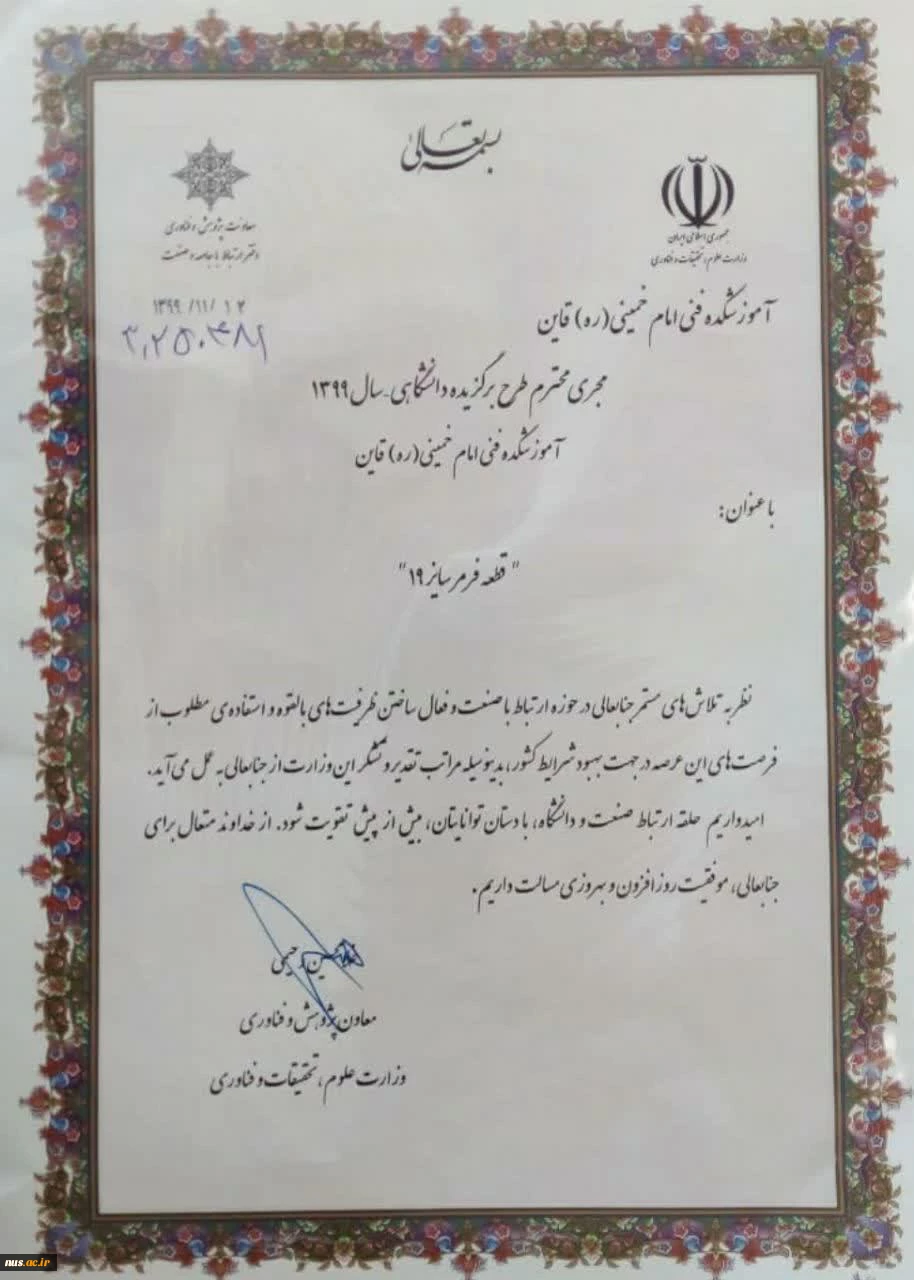 بسمه تعالی
جمهوری اسلامی ایران
وزارت علوم، تحقیقات و فناوری
معاونت پژوهش و فناوری
دفتر ارتباط با جامعه و صنعت
۱۳۹۹/۱۱/۱۲
آموزشکده فنی امام خمینی(ره) قاین
مجری محترم طرح برگزیده دانشگاهی-سال ۱۳۹۹
آموزشکده فنی امام خمینی(ره) قاین
با عنوان:
"قطعه فرمر سایز ۱۹"
نظر به تلاش‌های مستمر جنابعالی در حوزه ارتباط با صنعت و فعال ساختن ظرفیت‌های بالقوه و استفاده‌ی مطلوب از
فرصت‌های این عرصه در جهت بهبود شرایط کشور، بدینوسیله مراتب تقدیر و تشکر این وزارت از جنابعالی به عمل می‌آید.
امیدواریم حلقه ارتباط صنعت و دانشگاه، با دستان توانایتان، بیش از پیش تقویت شود. از خداوند متعال برای
جنابعالی، موفقیت روزافزون و بهروزی مسالت داریم.
حسین رحیمی
معاون پژوهش و فناوری
وزارت علوم، تحقیقات و فناوری
nus.ac.ir